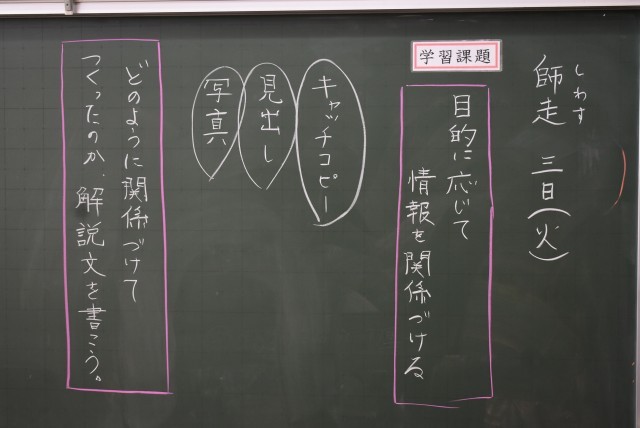 師走 三日(火)
しわす
学習課題
目的に応じて
情報を関係づける
キャッチコピー
見出し
写真
どのように関係づけて
つくったのか、解説文を書こう。